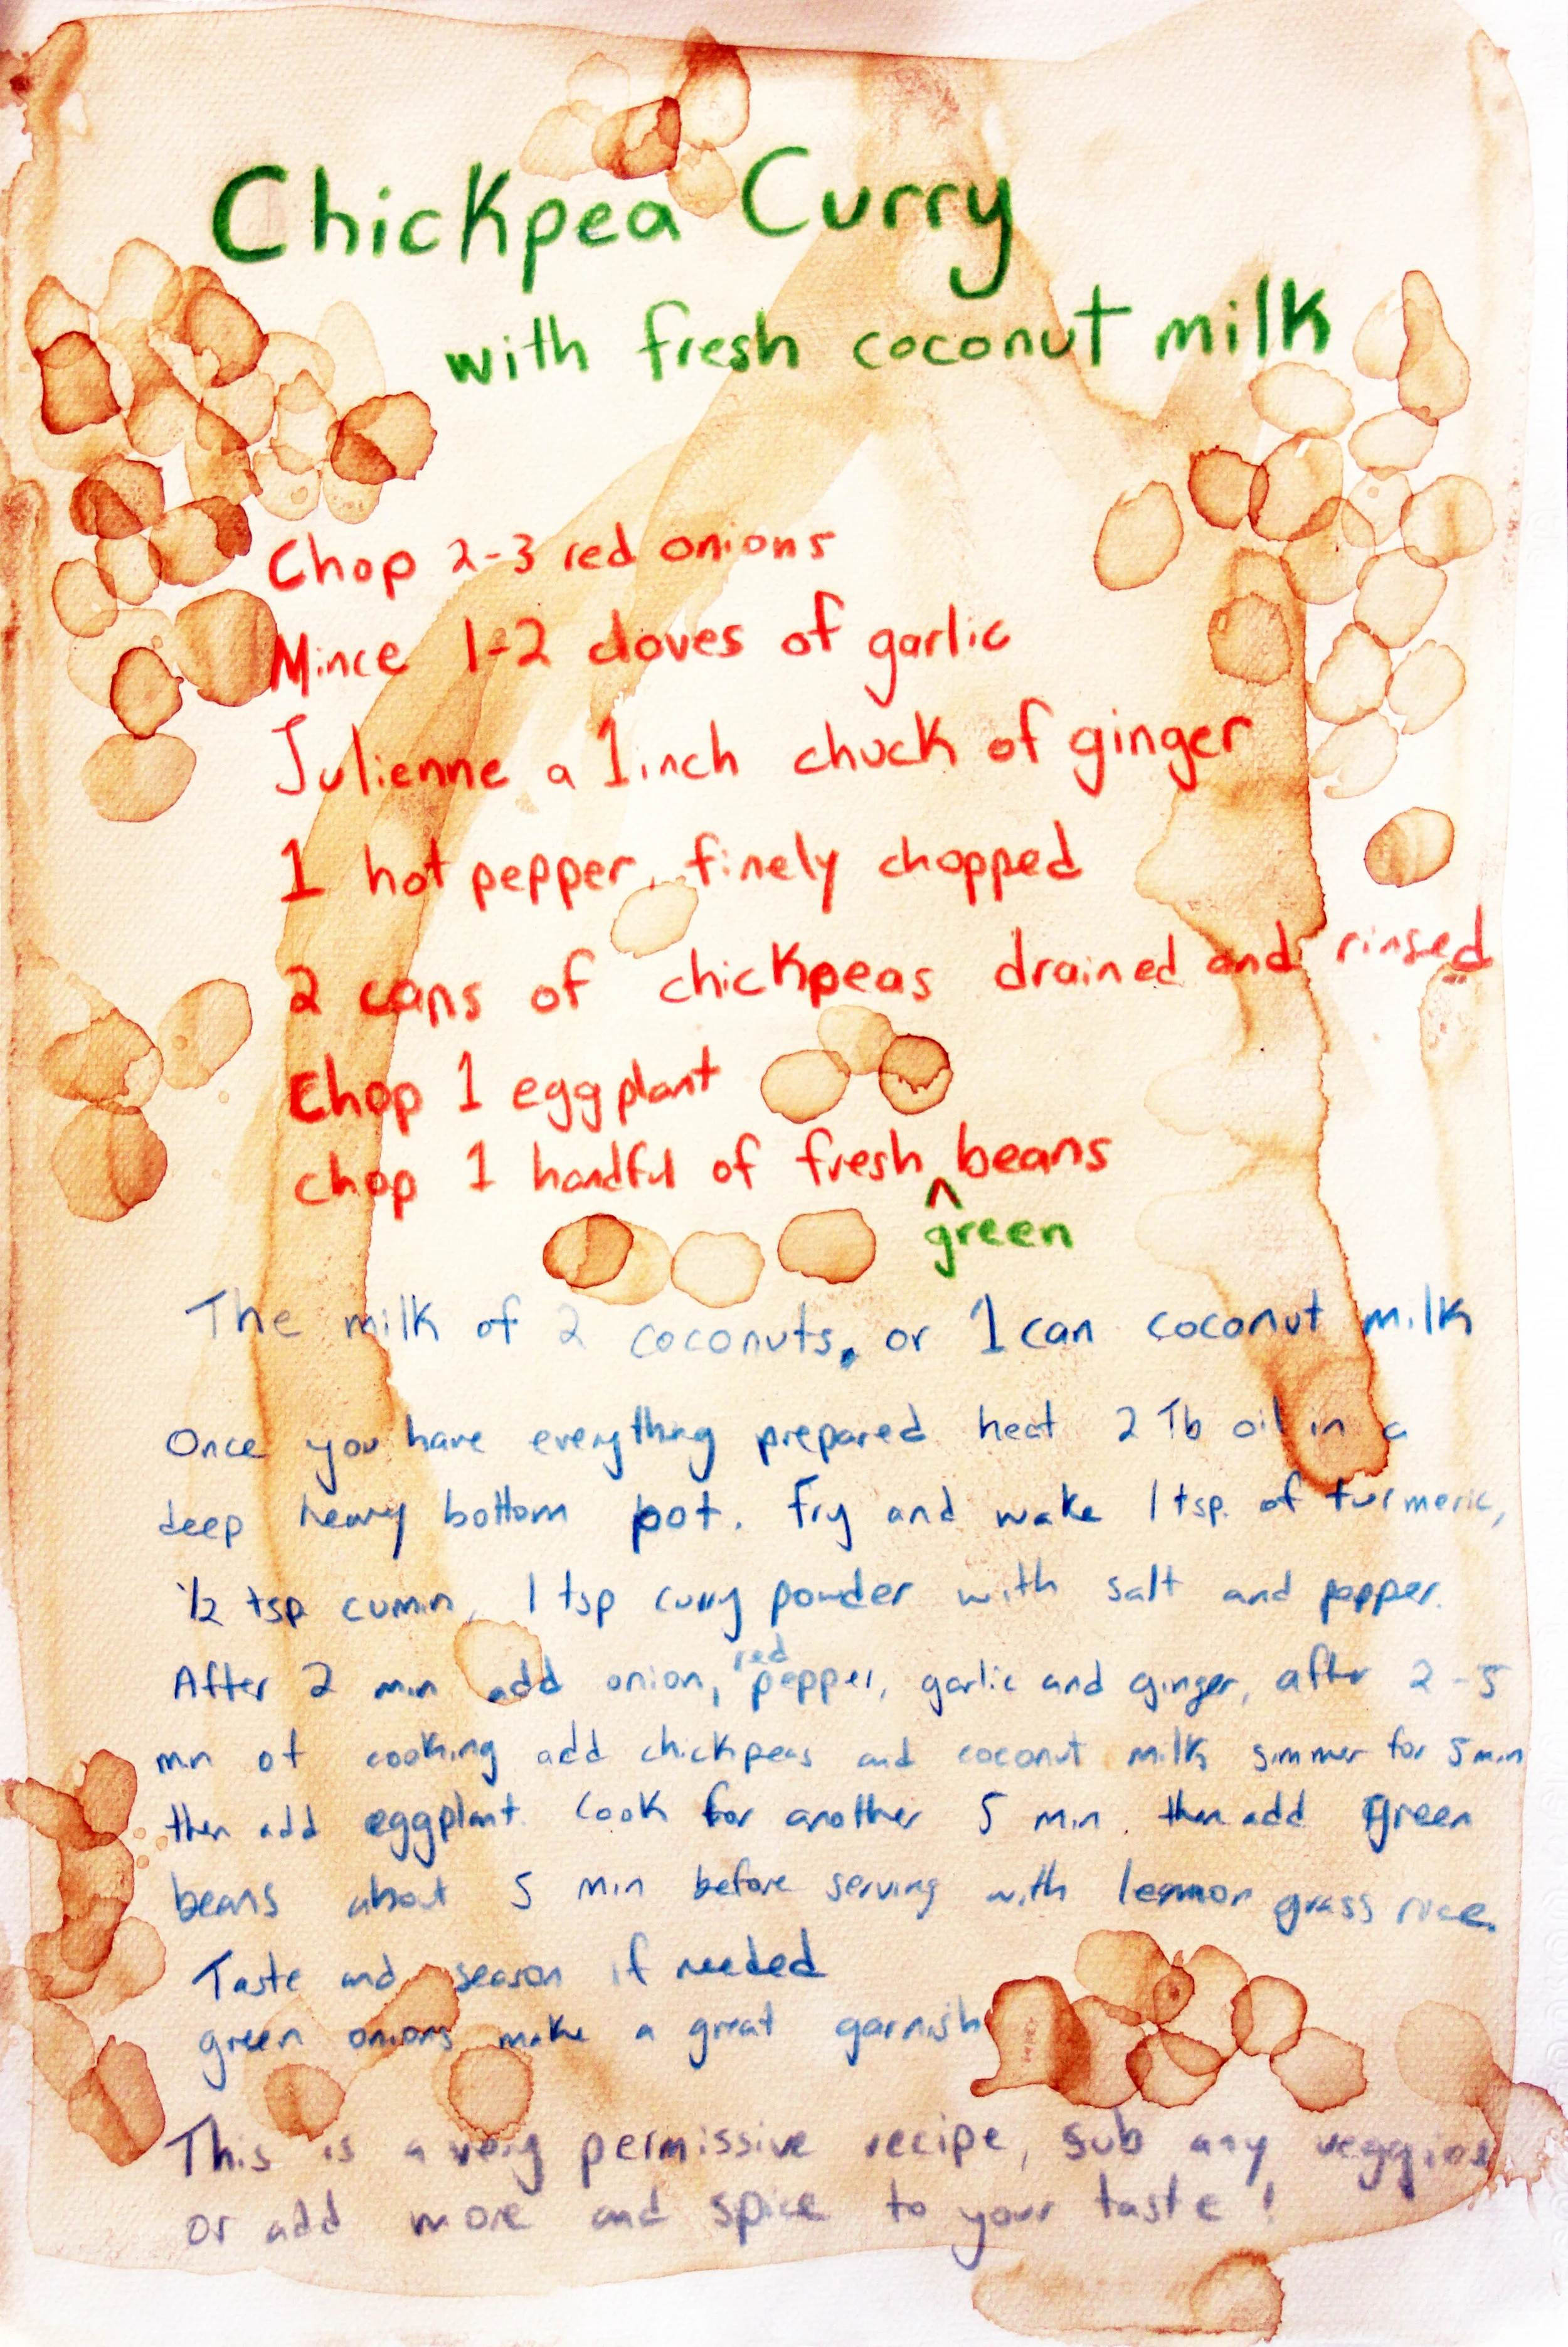 Chickpea Curry
with fresh coconut milk
Chop 2-3 red onions
Mince 1-2 cloves of garlic
Julienne a 1 inch chuck of ginger
1 hot pepper, finely chopped
2 cans of chickpeas drained and rinsed
Chop 1 eggplant
chop 1 handful of fresh ^ beans
green
The milk of 2 coconuts, or 1 can coconut milk
Once you have everything prepared heat 2 Tb oil in a
deep heavy bottom pot. Fry and wake 1 tsp. of turmeric,
1/2 tsp cumin, 1 tsp curry powder with salt and pepper.
red
After 2 min add onion, pepper, garlic and ginger, after 2-5
min of cooking add chickpeas and coconut milk simmer for 5 min
then add eggplant. Cook for another 5 min. then add green
beans about 5 min before serving with lemmon grass rice.
Taste and season if needed
green onions make a great garnish
This is a very permissive recipe, sub any veggies
or add more and spice to your taste!